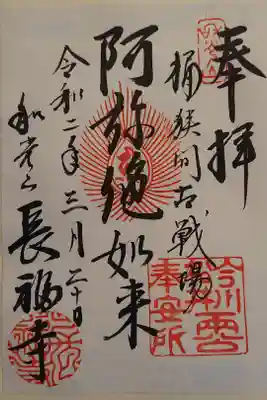 奉拝
桶狭間古戦場
阿弥絶如来
令和二年三月二十日
和光山
長福寺
奉安所